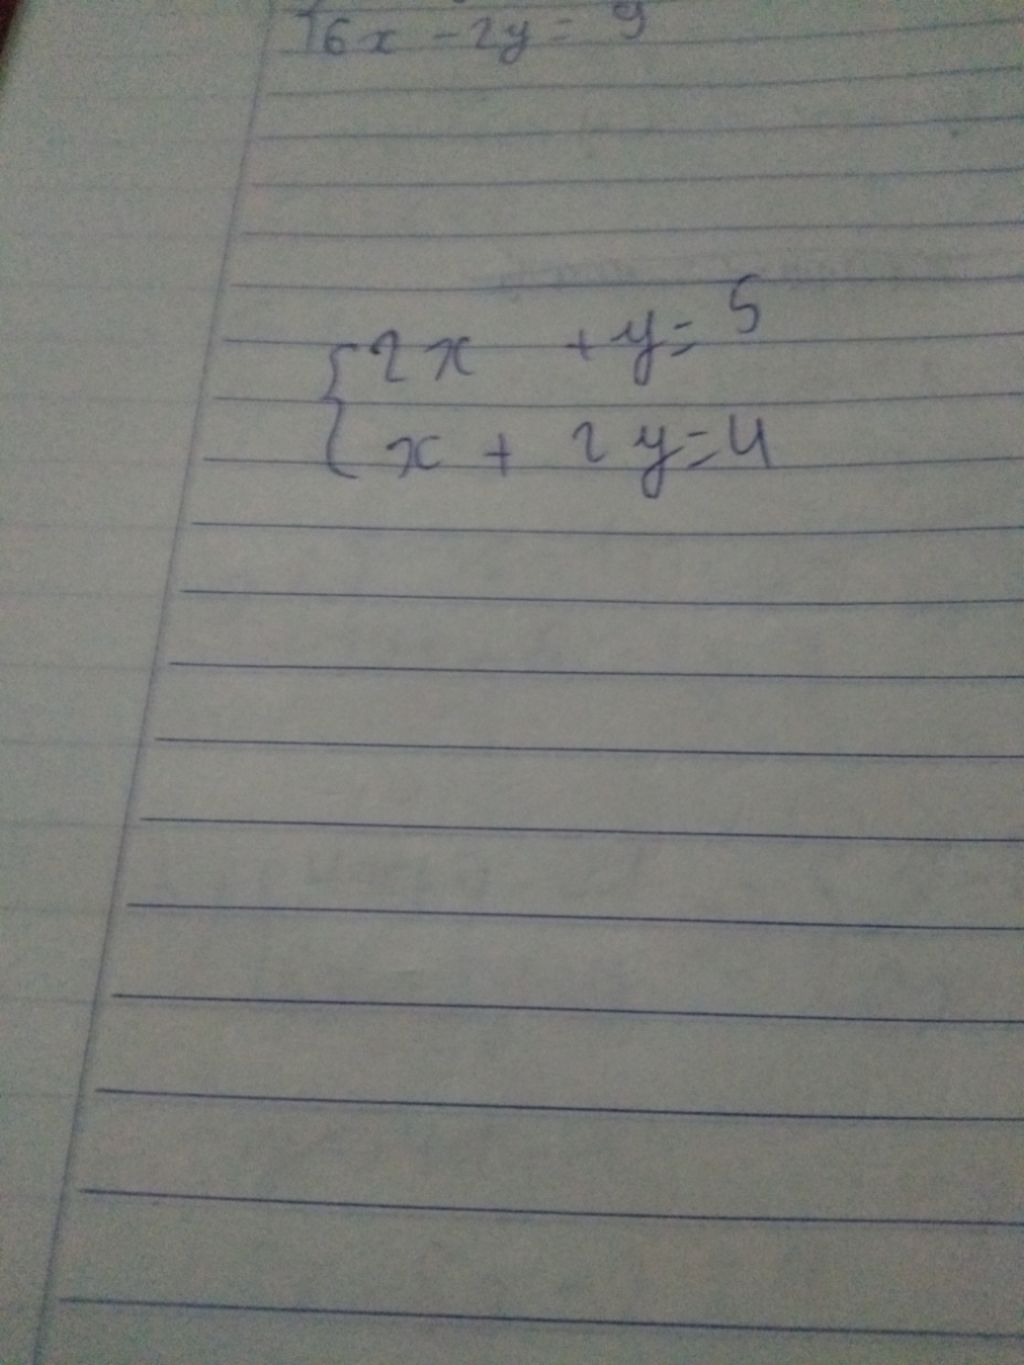 6x - 2y = 9
2x + y = 5
x + 2y = 4